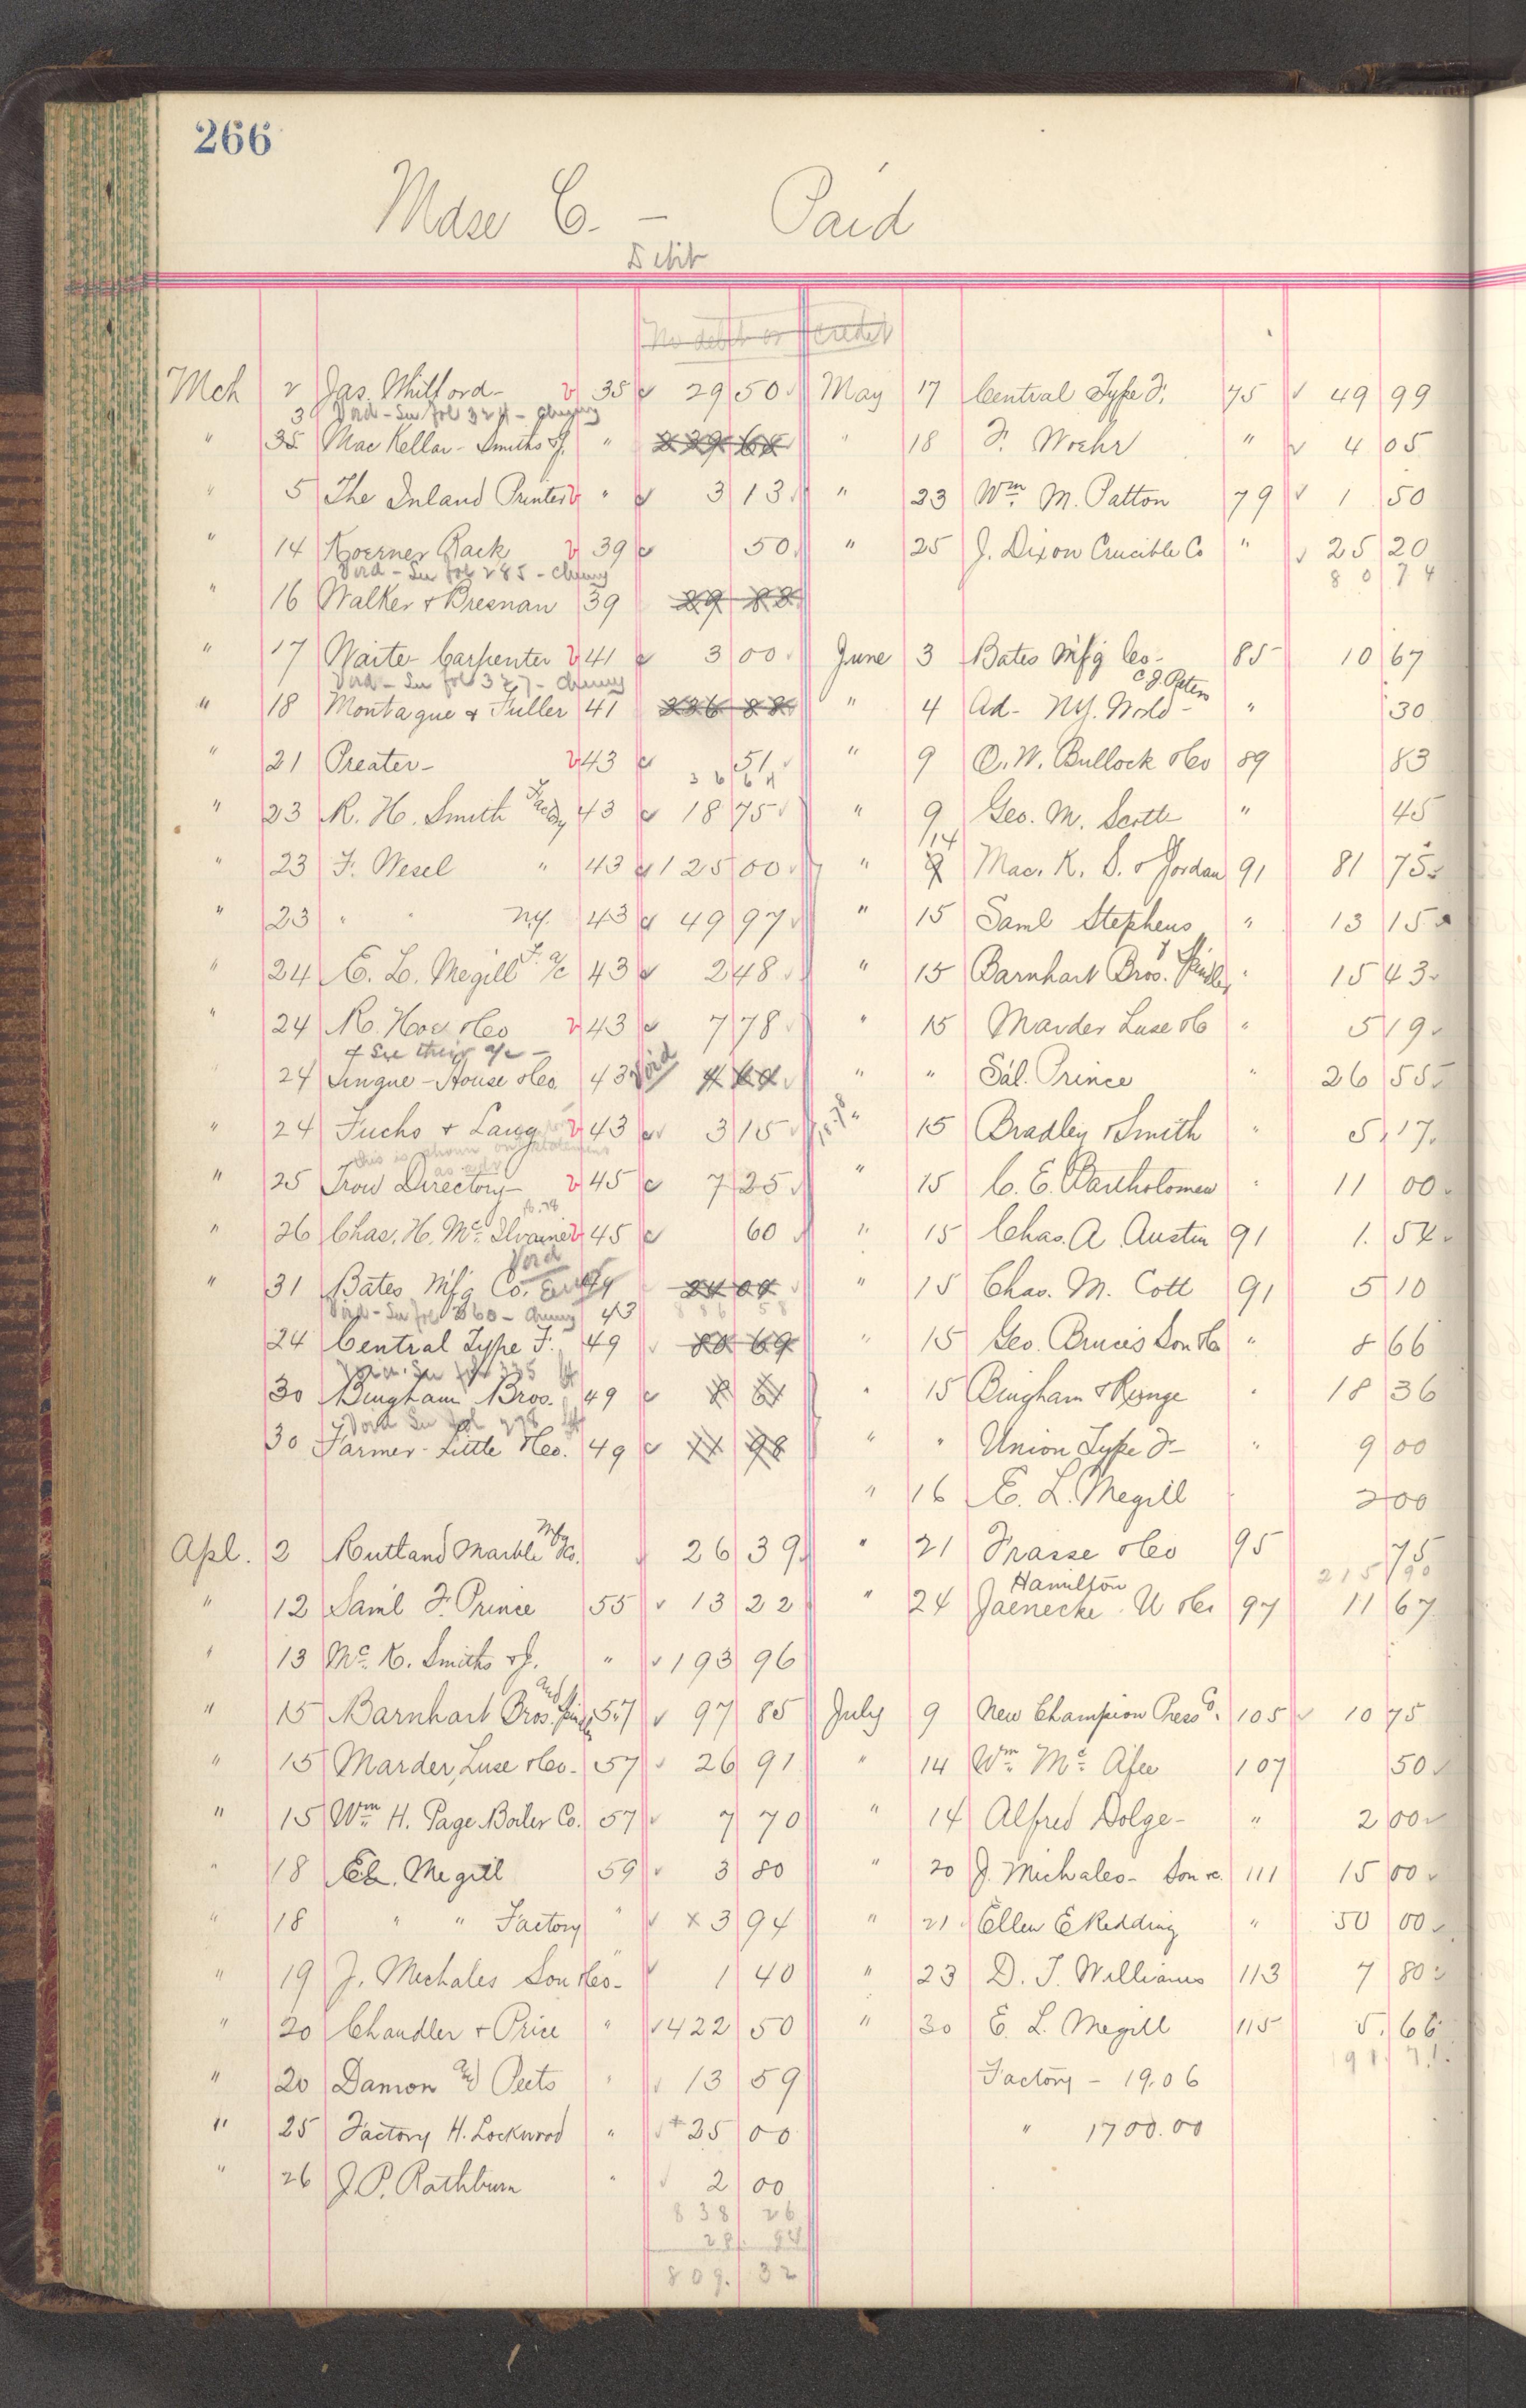 266
Mdse C. - Paid
Debit
No debit or credit
Mch 2 Jas. Whitford - 35 29 50
3 Void - See fol 324 -
" 35 MacKellar - Smiths & J. " 239 62
" 5 The Inland Printer " 3 13
" 14 Koerner Rack 39 50
Void - See fol 285 -
" 16 Walker & Bresnan 39 29 82
" 17 Waite Carpenter 41 3 00
Void - See fol 327 -
" 18 Montague & Fuller 41 236 88
" 21 Preater - 43 51
36 64
" 23 R. H. Smith Facty 43 18 75
" 23 F. Wesel " 43 125 00
" 23 " " N.Y. 43 49 97
" 24 E. L. Megill F. a/c 43 2 48
" 24 R. Hoe & Co 43 7 78
& See their a/c -
24 Lingue - House & Co. 43 Void 4 60
" 24 Fuchs & Lang 43 3 15
this is shown on statement
as adv
" 25 Trow Directory - 45 7 25
" 26 Chas. H. Mc Ilvaine 45 60
Void
" 31 Bates Mfg Co. Error 49 24 04
Void - See fol 260 - 43 886 58
24 Central Type F. 49 80 69
Void. See fol 335
30 Bingham Bros. 49 8 61
Void See fol 298
30 Farmer - Little & Co. 49 11 98
Apl. 2 Rutland Marble Mfg Co. 26 39
" 12 Saml F. Prince 55 13 22
" 13 Mc. K. Smiths & J. " 193 96
" 15 Barnhart Bros. and Spindler 57 97 85
" 15 Marder, Luse & Co. - 57 26 91
" 15 Wm H. Page Boiler Co. 57 7 70
" 18 E.L. Megill 59 3 80
" 18 " " Factory " x 3 94
" 19 J. Michales Son & Co - " 1 40
" 20 Chandler & Price " 422 50
" 20 Damon and Peets " 13 59
" 25 Factory H. Lockwood " + 25 00
" 26 J. P. Rathburn " 2 00
838 26
28. 94
809. 32
May 17 Central Type F. 75 49 99
" 18 F. Woehr " 4 05
" 23 Wm M. Patton 79 1 50
" 25 J. Dixon Crucible Co " 25 20
80 74
June 3 Bates Mfg Co - 85 10 67
C. J. Peters
" 4 Ad - N.Y. World - " 30
" 9 O. W. Bullock & Co 89 83
" 9 Geo. M. Scott " 45
/14
" 9 Mac. K. S. & Jordan 91 81 75
" 15 Saml Stephens " 13 15
" 15 Barnhart Bros. & Spindler " 15 43
" 15 Marder Luse & C " 5 19
" " Sal. Prince " 26 55
" 15 Bradley & Smith " 5 17
" 15 C. E. Bartholomew " 11 00
" 15 Chas. A Austin 91 1. 54
" 15 Chas. M. Cott 91 5 10
" 15 Geo. Bruce's Son & Co " 8 66
" 15 Bingham & Runge " 18 36
" " Union Type F - " 9 00
" 16 E. L. Megill 2 00
" 21 Frasse & Co 95 75
215 90
" 24 Jaenecke Hamilton U & Co 97 11 67
July 9 New Champion Press Co. 105 10 75
" 14 Wm Mc Afee 107 50
" 14 Alfred Dolge - " 2 00
" 20 J. Michales - Son &c. 111 15 00
" 21 Ellen E Redding " 50 00
" 23 D. T. Williams 113 7 80
" 30 E. L. Megill 115 5. 66
191. 71.
Factory - 19.06
" 1700.00